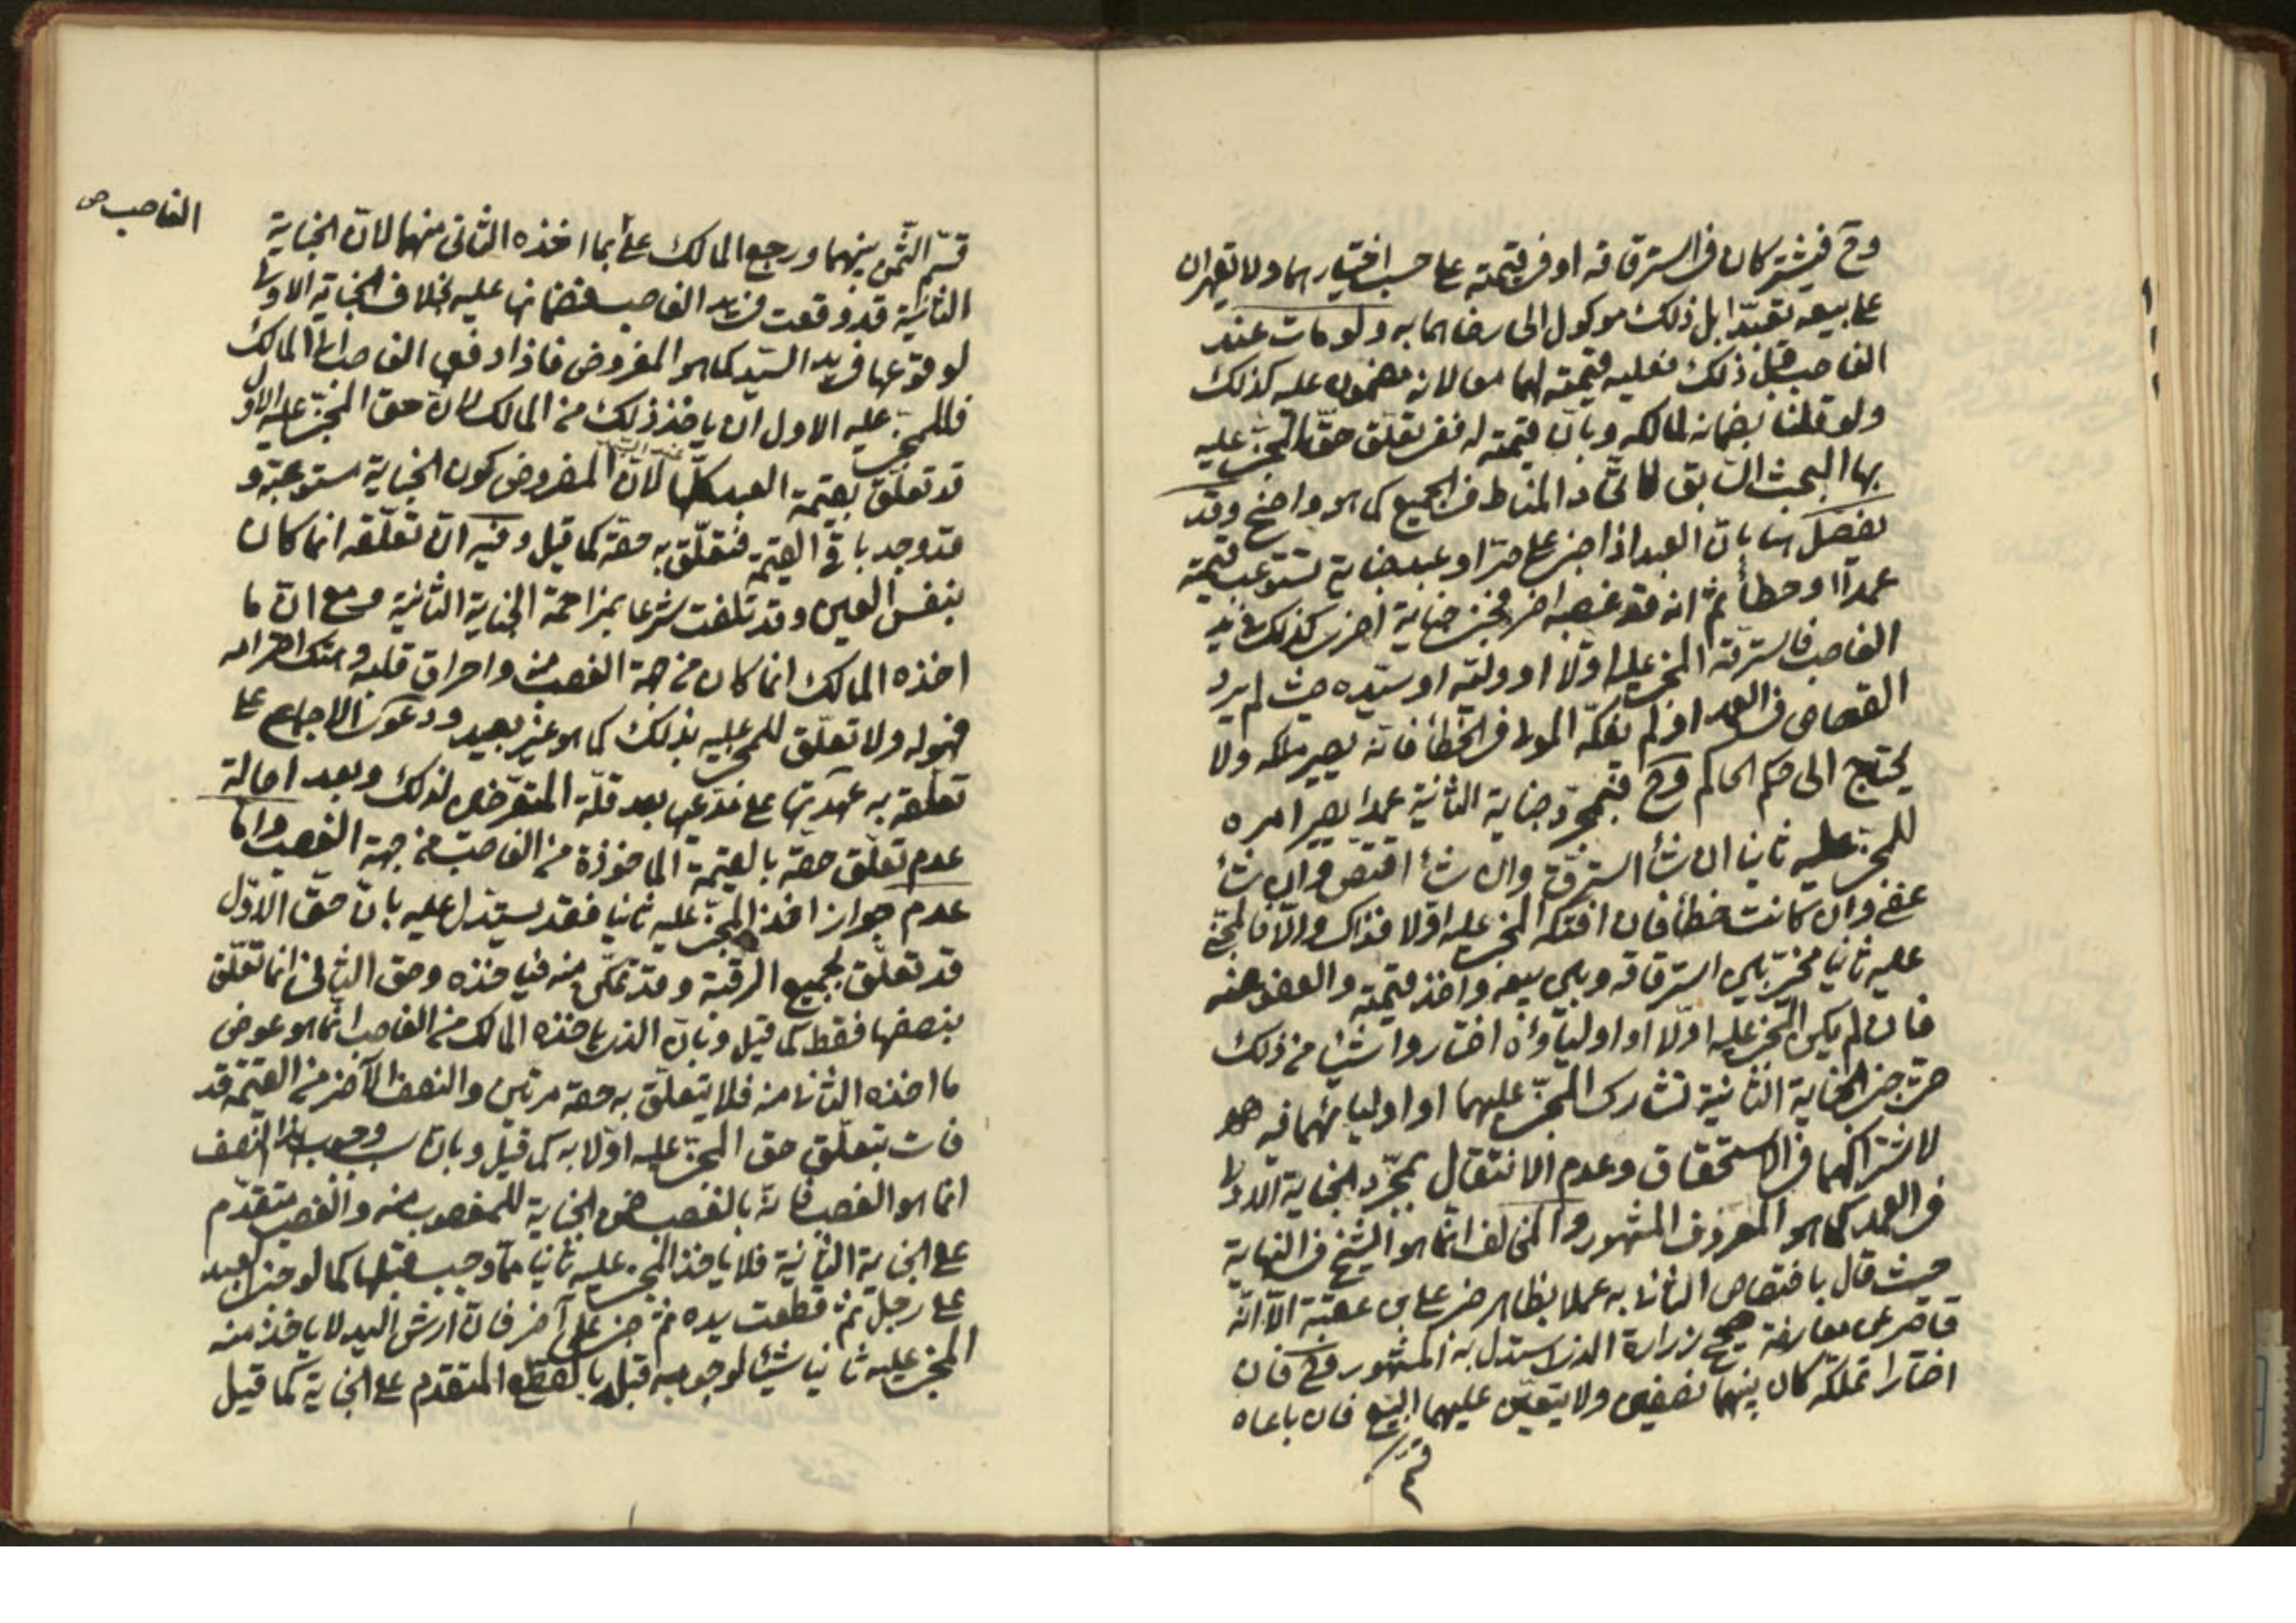 وح فيشتركان في استرقاقه او في قيمته على حسب اختيارهما ولا يقهران
على بيعه تعبّدا بل ذلك موكول الى رضاهما به ولو مات عند
الغاصب قبل ذلك فعليه قيمته لهما معا لانه مضمون عليه كذلك
ولو قلنا بضمانه لمالكه وبان قيمته له ففى تعلّق حق المجنى عليه
بها البحث السابق لاتّحاد المناط في الجميع كما هو واضح وقد
يفصّل هنا بان العبد اذا جنى على حرّ او عبد جناية تستوعب قيمته
عمدًا او خطأ ثم انه قد غصبه اخر فجنى جناية اخرى كذلك في يد
الغاصب فاسترقّه المجنى عليه اولا او وليّه او سيّده حيث لم يرد
القصاص في العمد او لم يفكّه المولى في الخطأ فانه يصير ملكه ولا
يحتاج الى حكم الحاكم وح فبمجرّد جناية الثانية عمدا يصير امره
للمجنى عليه ثانيا ان شاء استرقّ وان شاء اقتصّ وان شاء
عفى وان كانت خطأ فان افتكّه المجنى عليه اولا فذاك والّا فالمجنى
عليه ثانيا مخيّر بين استرقاقه وبين بيعه واخذ قيمته والعفو عنه
فان لم يكن المجنى عليه اوّلا او اولياؤه اختاروا شيئا من ذلك
حتى جنى الجناية الثانية تشارك المجنى عليهما او اوليائهما فيه
لاشتراكهما في الاستحقاق وعدم الانتقال بمجرّد الجناية الاولى
في العمد كما هو المعروف المشهور والمخالف انما هو الشيخ في النهاية
حيث قال باختصاص الثاني به عملا بظاهر خبر علي بن عقبة الّا انّه
قاصر عن معارضة صحيح زرارة الذي استدل به المشهور وح فان
اختارا تملّكه كان بينهما نصفين ولا يتعيّن عليهما البيع فان باعاه
قسّم
الغاصب ص
قسّم الثّمن بينهما ورجع المالك على بما اخذه الثاني منهما لانّ الجناية
الثانية قد وقعت في يد الغاصب فضمانها عليه بخلاف الجناية الاولى
لوقوعها في يد السيّد كما هو المفروض فاذا دفعه الغاصب الى المالك
فللمجنى عليه الاول ان ياخذ ذلك من المالك لانّ حق المجنى عليه الاول
قد تعلّق بقيمة العبد كلّها لانّ المفروض كون الجناية مستوعبة و
قد وجد باقي القيمة فتعلّق به حقّه كما قيل وفيه انّ تعلّقه انما كان
بنفس العين وقد تلفت شرعا بمزاحمة الجناية الثانية مع انّ ما
اخذه المالك انما كان من جهة الغصب منه واحراق قلبه وهتك احترامه
فهو له ولا تعلّق للمجنى عليه بذلك كما هو غير بعيد ودعوى الاجماع على
تعلّقه به عهدتها على مدّعيها بعد قلّة المتعرّض لذلك وبعد اصالة
عدم تعلّق حقّه بالقيمة الماخوذة من الغاصب من جهة الغصب وامّا
عدم جواز اخذ المجنى عليه ثانيا فقد يستدل عليه بان حق الاوّل
قد تعلّق بجميع الرقبة وقد تمكّن منه فياخذه وحق الثاني انما تعلّق
بنصفها فقط كما قيل وبان الذي ياخذه المالك من الغاصب انّما هو عوض
ما اخذه الثاني منه فلا يتعلّق به حقه مرتين والنصف الآخر من القيمة قد
فات بتعلّق حق المجنى عليه اوّلا به كما قيل وبان سبب وجوب هذا النّصف
انما هو الغصب فانّه بالغصب ضمن الجناية للمغصوب منه والغصب متقدّم
على الجناية الثانية فلا ياخذ المجنى عليه ثانيا ممّا وجب قبلها كما لو جنى العبد
على رجل ثم قطعت يده ثم جنى على آخر فان ارش اليد لا ياخذ منه
المجنى عليه ثانيا شيئا لوجوبه قبله بالقطع المتقدم على الجناية كما قيل